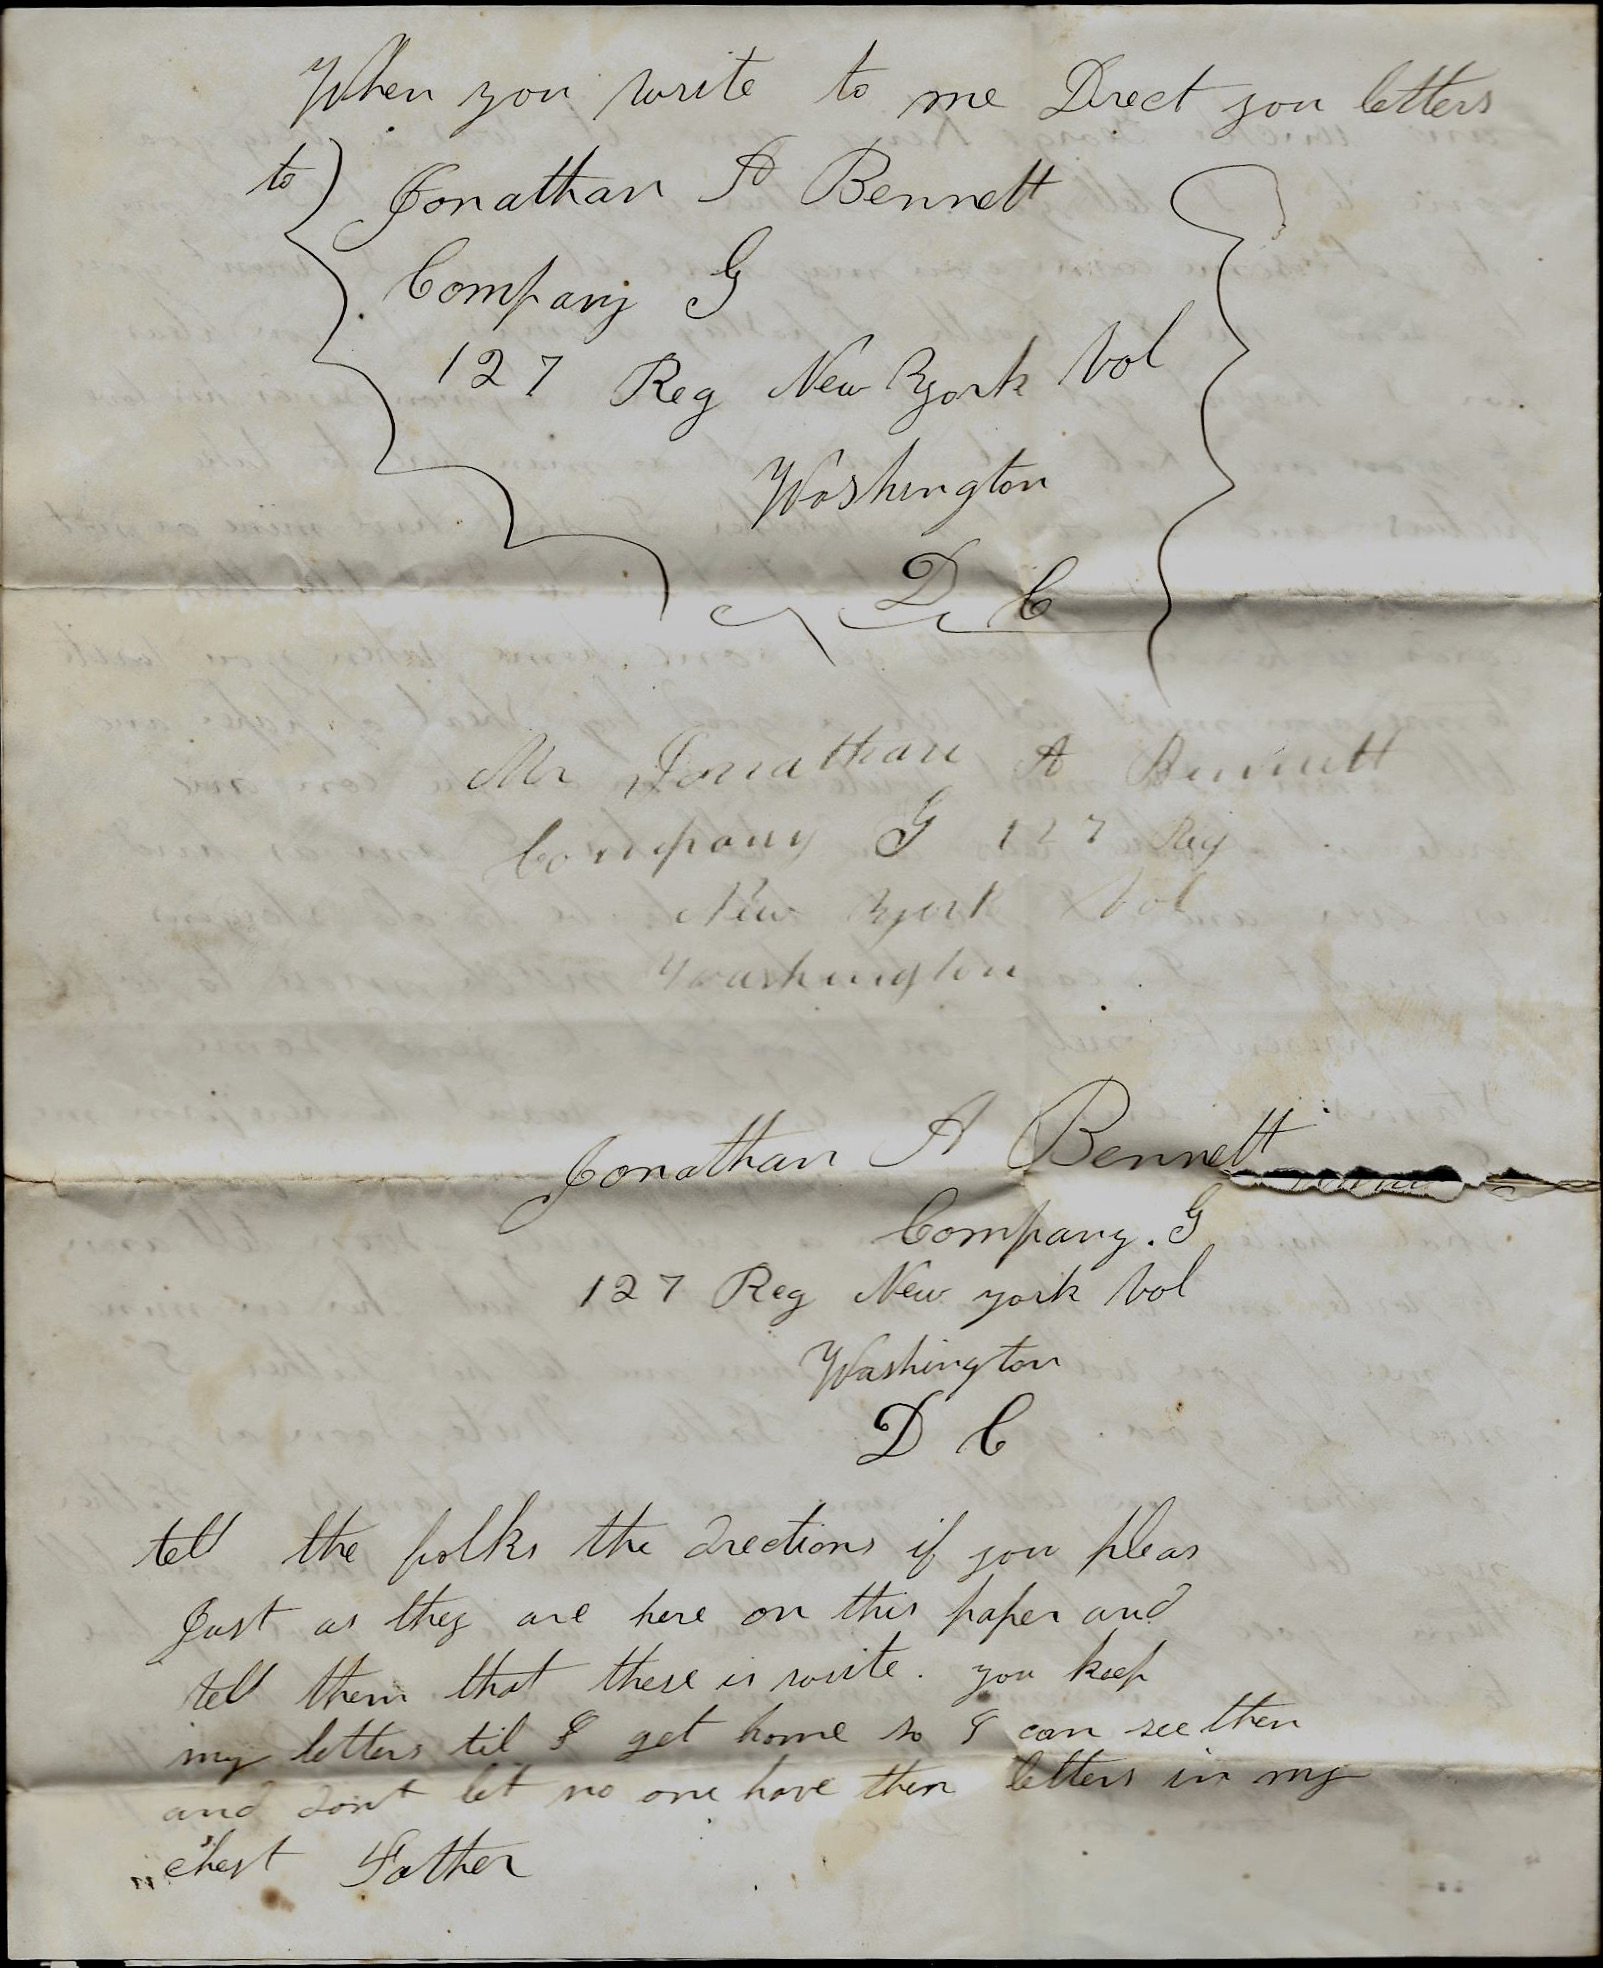 When you write to me Direct you letters
to Jonathan A Bennett
Company G
127 Reg New York Vol
Washington
D C
Mr Jonathan A Bennett
Company G 127 Reg
New York Vol
Washington
Jonathan A Bennett
Company. G
127 Reg New york Vol
Washington
D C
tell the folks the directions if you pleas
Just as they are here on this paper and
tell them that these is write. you keep
my letters til I get home so I can see then
and dont let no one have then letters in my
chest Father